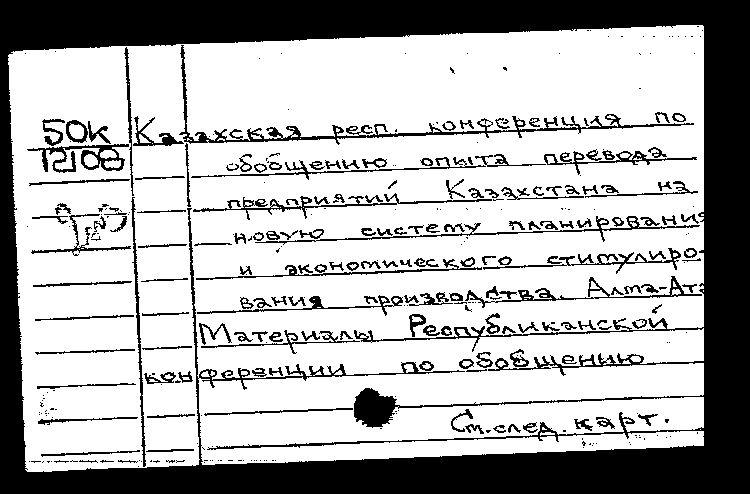 50к Казахская респ. конференция по
12108 обобщению опыта перевода
предприятий Казахстана на
новую систему планирования
и экономического стимулиро-
вания производства. Алма-Ата
Материалы Республиканской
конференции по обобщению
См. след. карт.